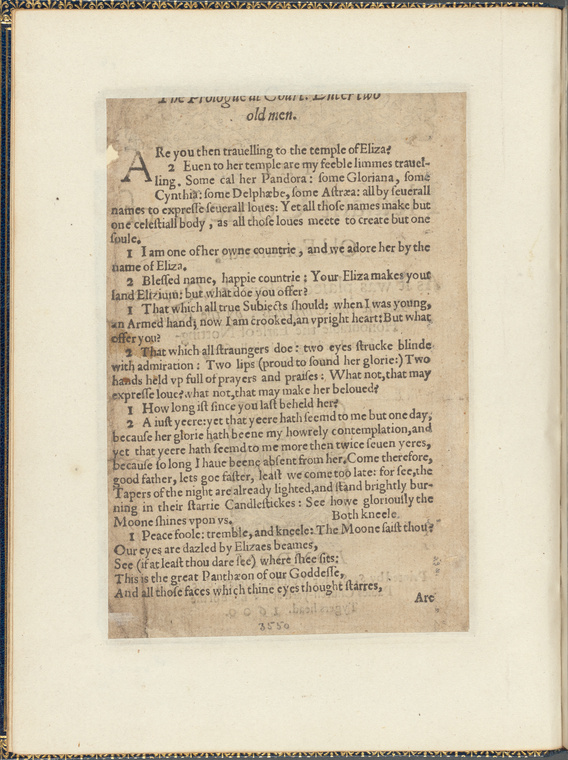 The Prologue at Court. Enter two
old men.
ARe you then trauelling to the temple of Eliza?
2 Euen to her temple are my feeble limmes trauel-
ling. Some cal her Pandora: some Gloriana, some
Cynthia: some Delphæbe, some Astræa: all by seuerall
names to expresse seuerall loues: Yet all those names make but
one celestiall body, as all those loues meete to create but one
soule.
1 I am one of her owne countrie, and we adore her by the
name of Eliza.
2 Blessed name, happie countrie: Your Eliza makes your
land Elizium: but what doe you offer?
1 That which all true Subiects should: when I was young,
an Armed hand; now I am crooked, an vpright heart: But what
offer you?
2 That which all straungers doe: two eyes strucke blinde
with admiration: Two lips (proud to sound her glorie:) Two
hands held vp full of prayers and praises: What not, that may
expresse loue? what not, that may make her beloued?
1 How long ist since you last beheld her?
2 A iust yeere: yet that yeere hath seemd to me but one day,
because her glorie hath beene my howrely contemplation, and
yet that yeere hath seemd to me more then twice seuen yeres,
because so long I haue beene absent from her. Come therefore,
good father, lets goe faster, least we come too late: for see, the
Tapers of the night are already lighted, and stand brightly bur-
ning in their starrie Candlestickes: See howe gloriously the
Moone shines vpon vs. Both kneele.
1 Peace foole: tremble, and kneele: The Moone saist thou?
Our eyes are dazled by Elizaes beames,
See (if at least thou dare see) where shee sits:
This is the great Panthæon of our Goddesse,
And all those faces which thine eyes thought starres,
Are
3550